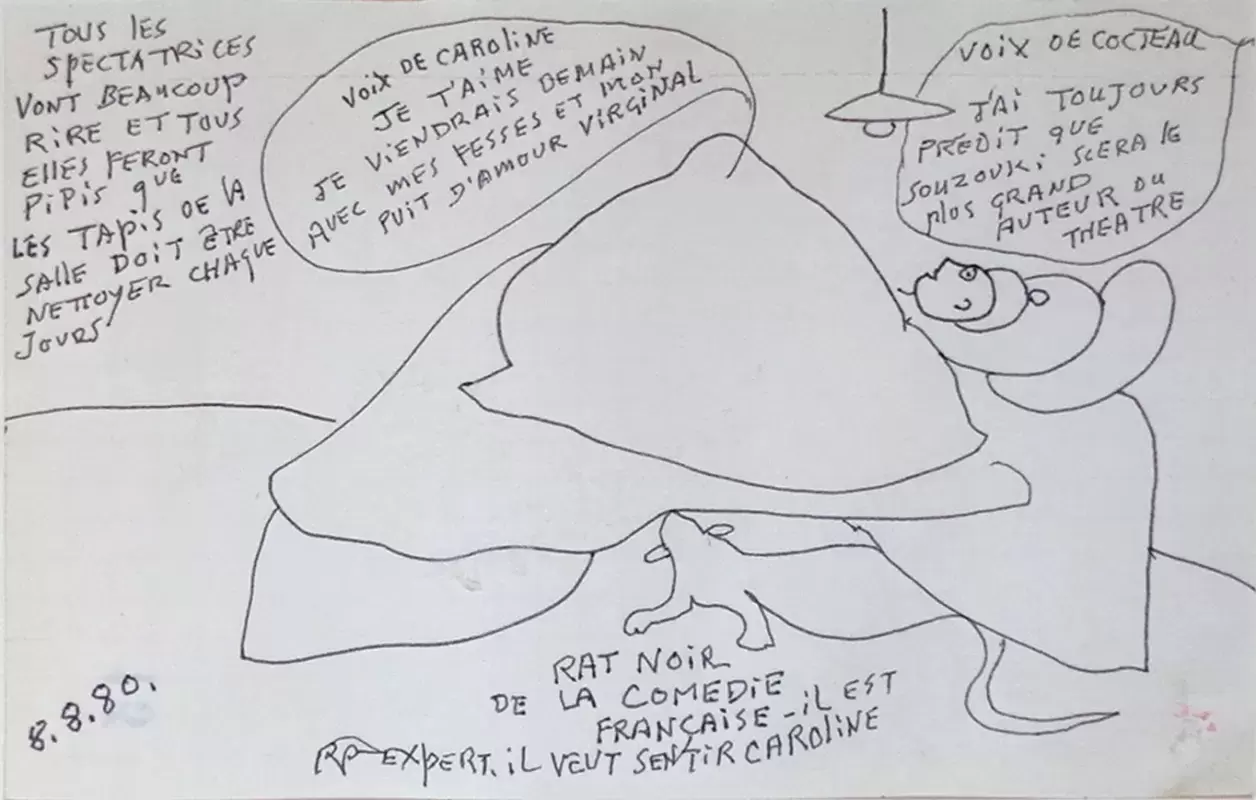 TOUS LES
SPECTATRICES
VONT BEAUCOUP
RIRE ET TOUS
ELLES FERONT
PIPIS QUE
LES TAPIS DE LA
SALLE DOIT ÊTRE
NETTOYER CHAQUE
JOURS
VOIX DE CAROLINE
JE T'AIME
JE VIENDRAIS DEMAIN
AVEC MES FESSES ET MON
PUIT D'AMOUR VIRGINAL
VOIX DE COCTEAU
J'AI TOUJOURS
PREDIT QUE
SOUZOUKI SCERA LE
PLOS GRAND
AUTEUR DU
THEATRE
RAT NOIR
DE LA COMEDIE
FRANÇAISE - IL EST
EXPERT. IL VEUT SENTIR CAROLINE
8.8.80.